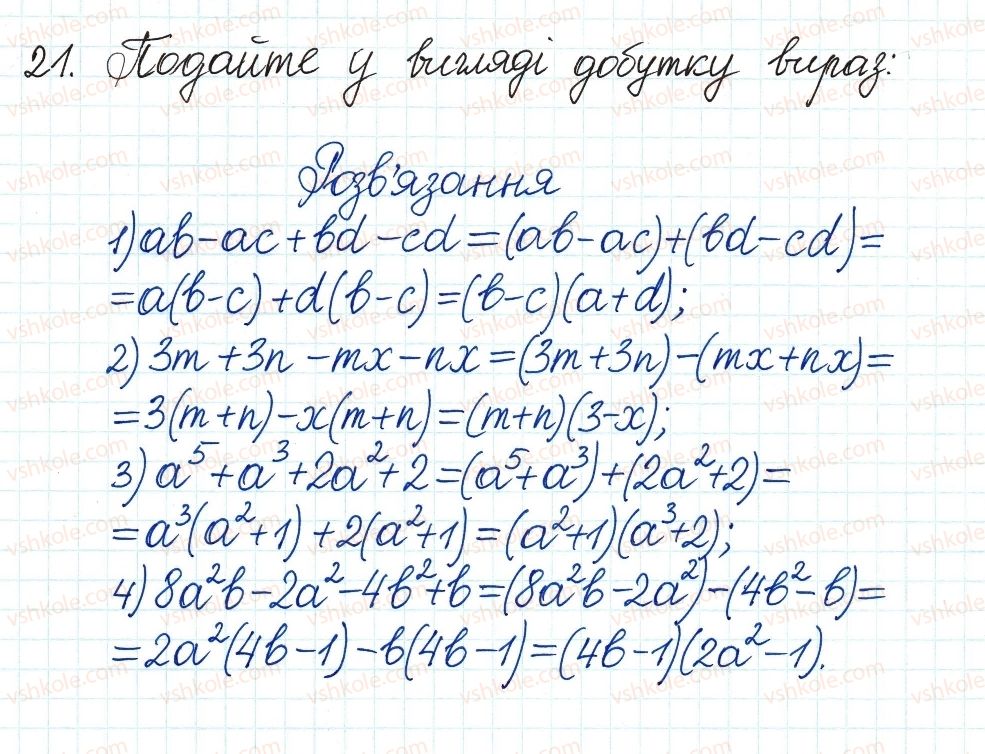 21. Подайте у вигляді добутку вираз:
Розв'язання
1) ab-ac+bd-cd=(ab-ac)+(bd-cd)=
=a(b-c)+d(b-c)=(b-c)(a+d);
2) 3m+3n-mx-nx=(3m+3n)-(mx+nx)=
=3(m+n)-x(m+n)=(m+n)(3-x);
3) a⁵+a³+2a²+2=(a⁵+a³)+(2a²+2)=
=a³(a²+1)+2(a²+1)=(a²+1)(a³+2);
4) 8a²b-2a²-4b²+b=(8a²b-2a²)-(4b²-b)=
=2a²(4b-1)-b(4b-1)=(4b-1)(2a²-1).
vshkole.com